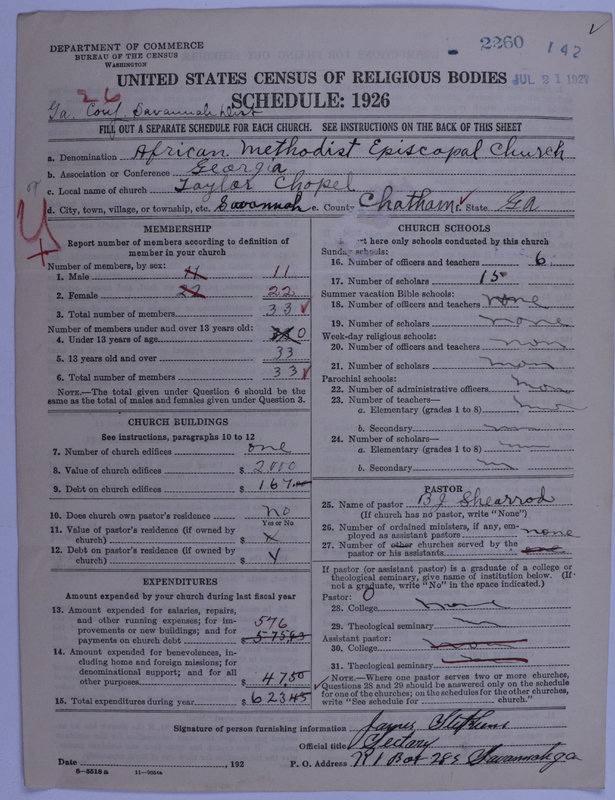 DEPARTMENT OF COMMERCE
BUREAU OF THE CENSUS
WASHINGTON
2260 142
UNITED STATES CENSUS OF RELIGIOUS BODIES
JUL 21 1927
26
Ga. Conf Savannah Dist
SCHEDULE: 1926
FILL OUT A SEPARATE SCHEDULE FOR EACH CHURCH. SEE INSTRUCTIONS ON THE BACK OF THIS SHEET
a. Denomination African Methodist Episcopal Church
b. Association or Conference Georgia
c. Local name of church Taylor Chapel
d. City, town, village, or township, etc. Savannah e. County Chatham f. State Ga
MEMBERSHIP
Report number of members according to definition of
member in your church
Number of members, by sex:
1. Male 11 11
2. Female 22 22
3. Total number of members 33
Number of members under and over 13 years old:
4. Under 13 years of age 0
5. 13 years old and over 33
6. Total number of members 33
NOTE.—The total given under Question 6 should be the
same as the total of males and females given under Question 3.
CHURCH BUILDINGS
See instructions, paragraphs 10 to 12
7. Number of church edifices one
8. Value of church edifices $ 2000
9. Debt on church edifices $ 167
10. Does church own pastor's residence No
Yes or No
11. Value of pastor's residence (if owned by
church) $ x
12. Debt on pastor's residence (if owned by
church) $
EXPENDITURES
Amount expended by your church during last fiscal year
13. Amount expended for salaries, repairs,
and other running expenses; for im-
provements or new buildings; and for
payments on church debt $ 576
14. Amount expended for benevolences, in-
cluding home and foreign missions; for
denominational support; and for all
other purposes $ 47.50
15. Total expenditures during year $ 623.45
CHURCH SCHOOLS
here only schools conducted by this church
Sunday schools:
16. Number of officers and teachers 6
17. Number of scholars 15
Summer vacation Bible schools:
18. Number of officers and teachers none
19. Number of scholars none
Week-day religious schools:
20. Number of officers and teachers non
21. Number of scholars non
Parochial schools:
22. Number of administrative officers non
23. Number of teachers—
a. Elementary (grades 1 to 8)
b. Secondary
24. Number of scholars—
a. Elementary (grades 1 to 8)
b. Secondary
PASTOR
25. Name of pastor B J Shearrod
(If church has no pastor, write "None")
26. Number of ordained ministers, if any, em-
ployed as assistant pastors none
27. Number of other churches served by the
pastor or his assistants one
If pastor (or assistant pastor) is a graduate of a college or
theological seminary, give name of institution below. (If
not a graduate, write "No" in the space indicated.)
Pastor:
28. College none
29. Theological seminary
Assistant pastor:
30. College
31. Theological seminary
NOTE.—Where one pastor serves two or more churches,
Questions 28 and 29 should be answered only on the schedule
for one of the churches; on the schedules for the other churches,
write "See schedule for church."
Signature of person furnishing information James Stephens
Official title
Date , 192
P. O. Address R 1 Box 285 Savannah ga
8-5518 a 11-9024a